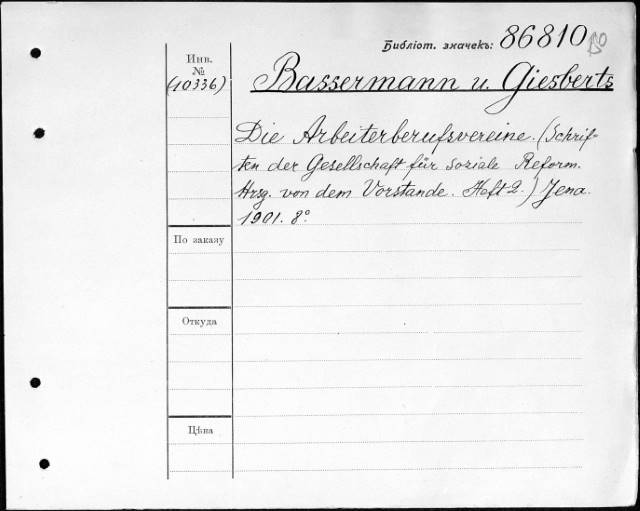 Библіот. значекъ: 86810
Инв.
№
(10336)
Bassermann u. Giesberts
Die Arbeiterberufsvereine. (Schrif-
ten der Gesellschaft für soziale Reform.
Hrsg. von dem Vorstande. Heft 2.) Jena.
1901. 8°
По заказу
Откуда
Цѣна